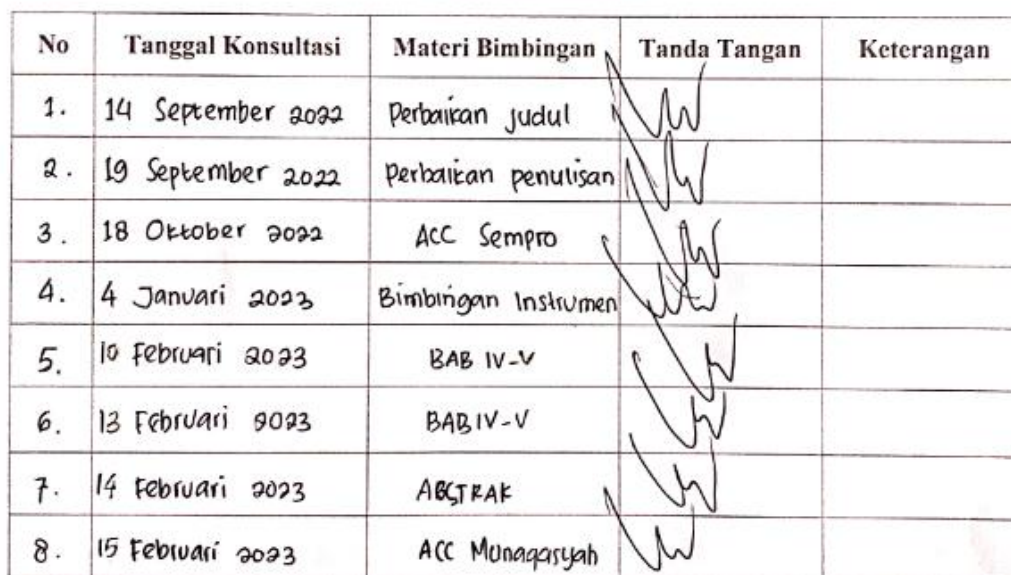 No Tanggal Konsultasi Materi Bimbingan Tanda Tangan Keterangan
1. 14 September 2022 Perbaikan judul
2. 19 September 2022 Perbaikan penulisan
3. 18 Oktober 2022 ACC Sempro
4. 4 Januari 2023 Bimbingan Instrumen
5. 10 Februari 2023 BAB IV-V
6. 13 Februari 2023 BAB IV-V
7. 14 Februari 2023 ABSTRAK
8. 15 Februari 2023 ACC Munaqasyah